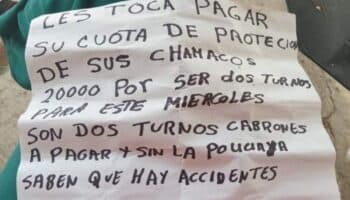 LES TOCA PAGAR
SU CUOTA DE PROTECION
DE SUS CHAMACOS
20000 POR SER DOS TURNOS
PARA ESTE MIERCOLES
SON DOS TURNOS CABRONES
A PAGAR Y SIN LA POLICIA YA
SABEN QUE HAY ACCIDENTES